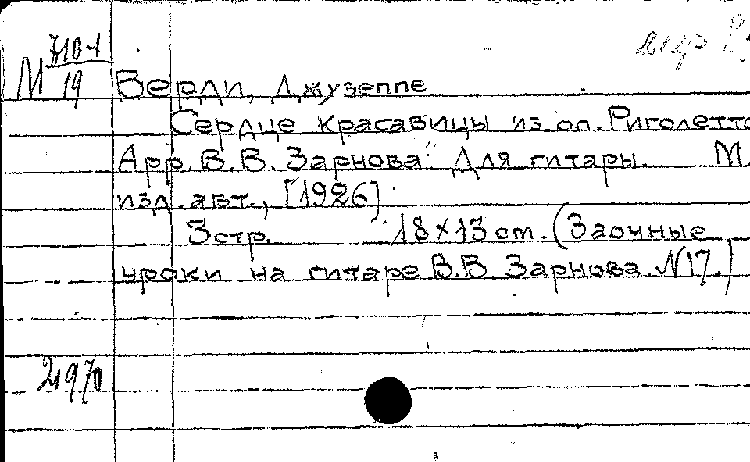 М 710-1
19
Верди, Джузеппе
Сердце красавицы из оп. Риголетто
Арр. В.В. Зарнова. Для гитары. М.
изд. авт., [1926].
3стр. 18×13 cm. (Заочные
уроки на гитаре В.В Зарнова. N17.)